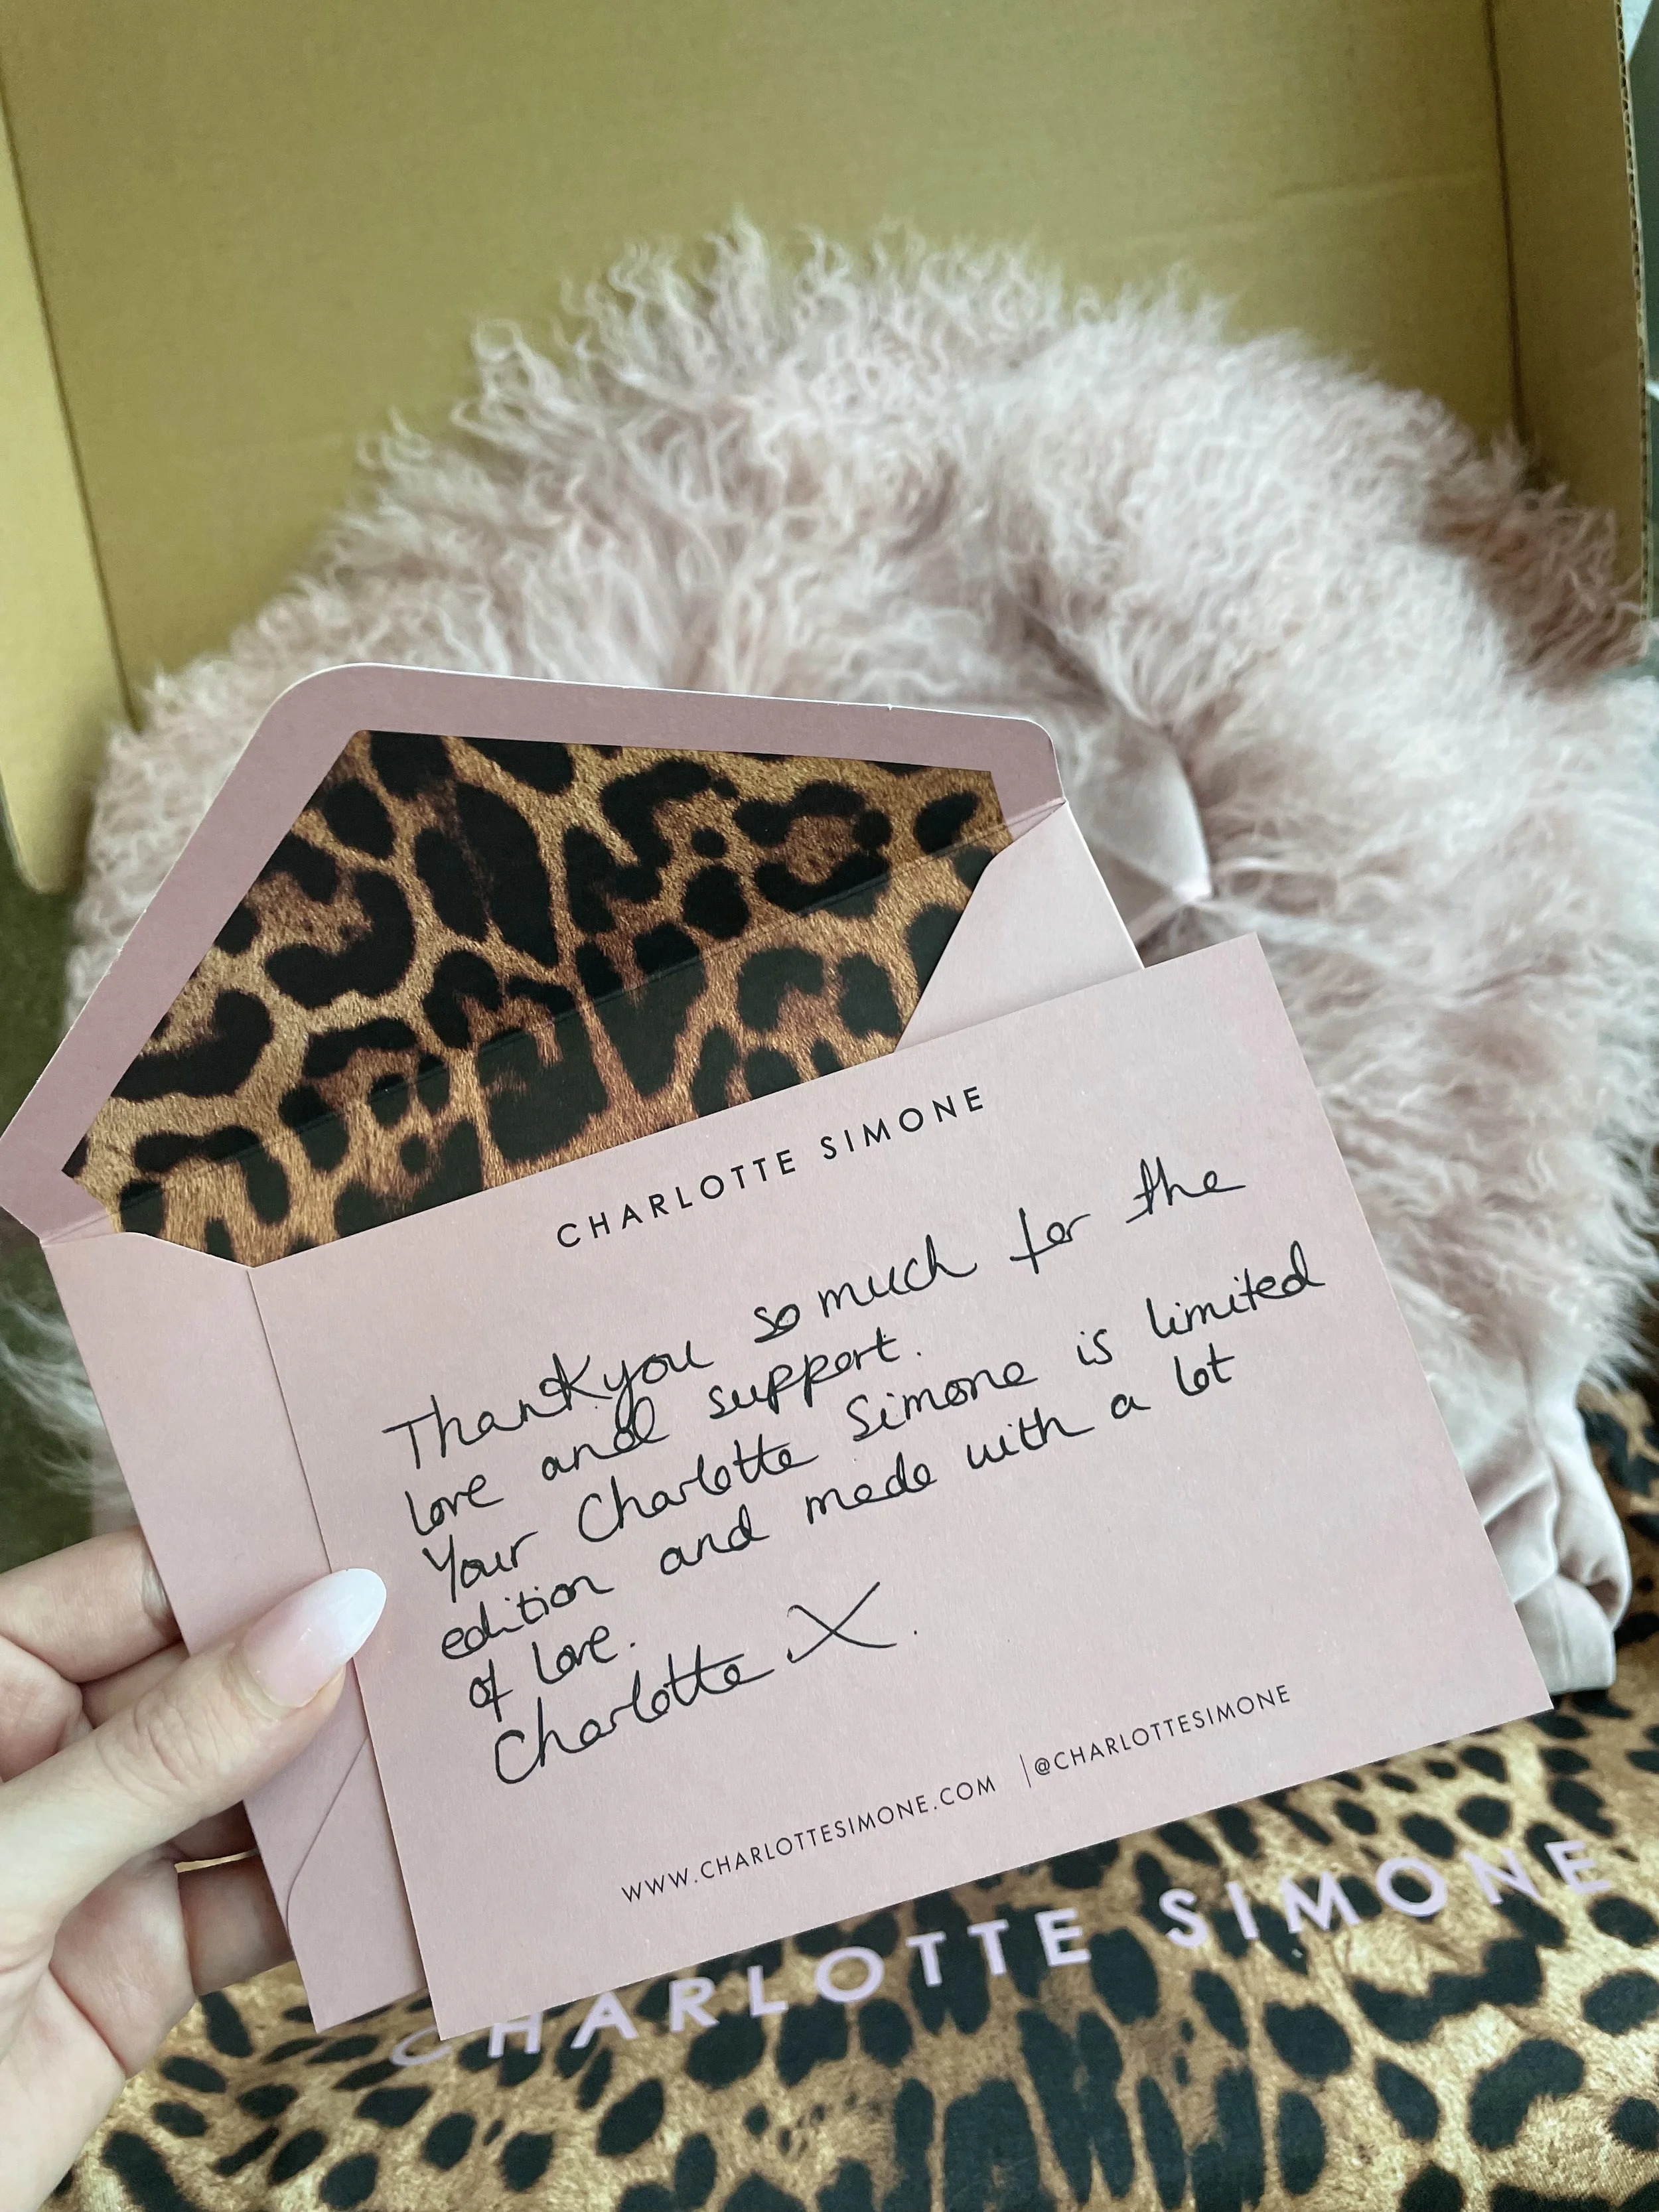 CHARLOTTE SIMONE
Thankyou so much for the
love and support.
Your Charlotte Simone is limited
edition and made with a lot
of love.
Charlotte X.
WWW.CHARLOTTESIMONE.COM | @CHARLOTTESIMONE
CHARLOTTE SIMONE